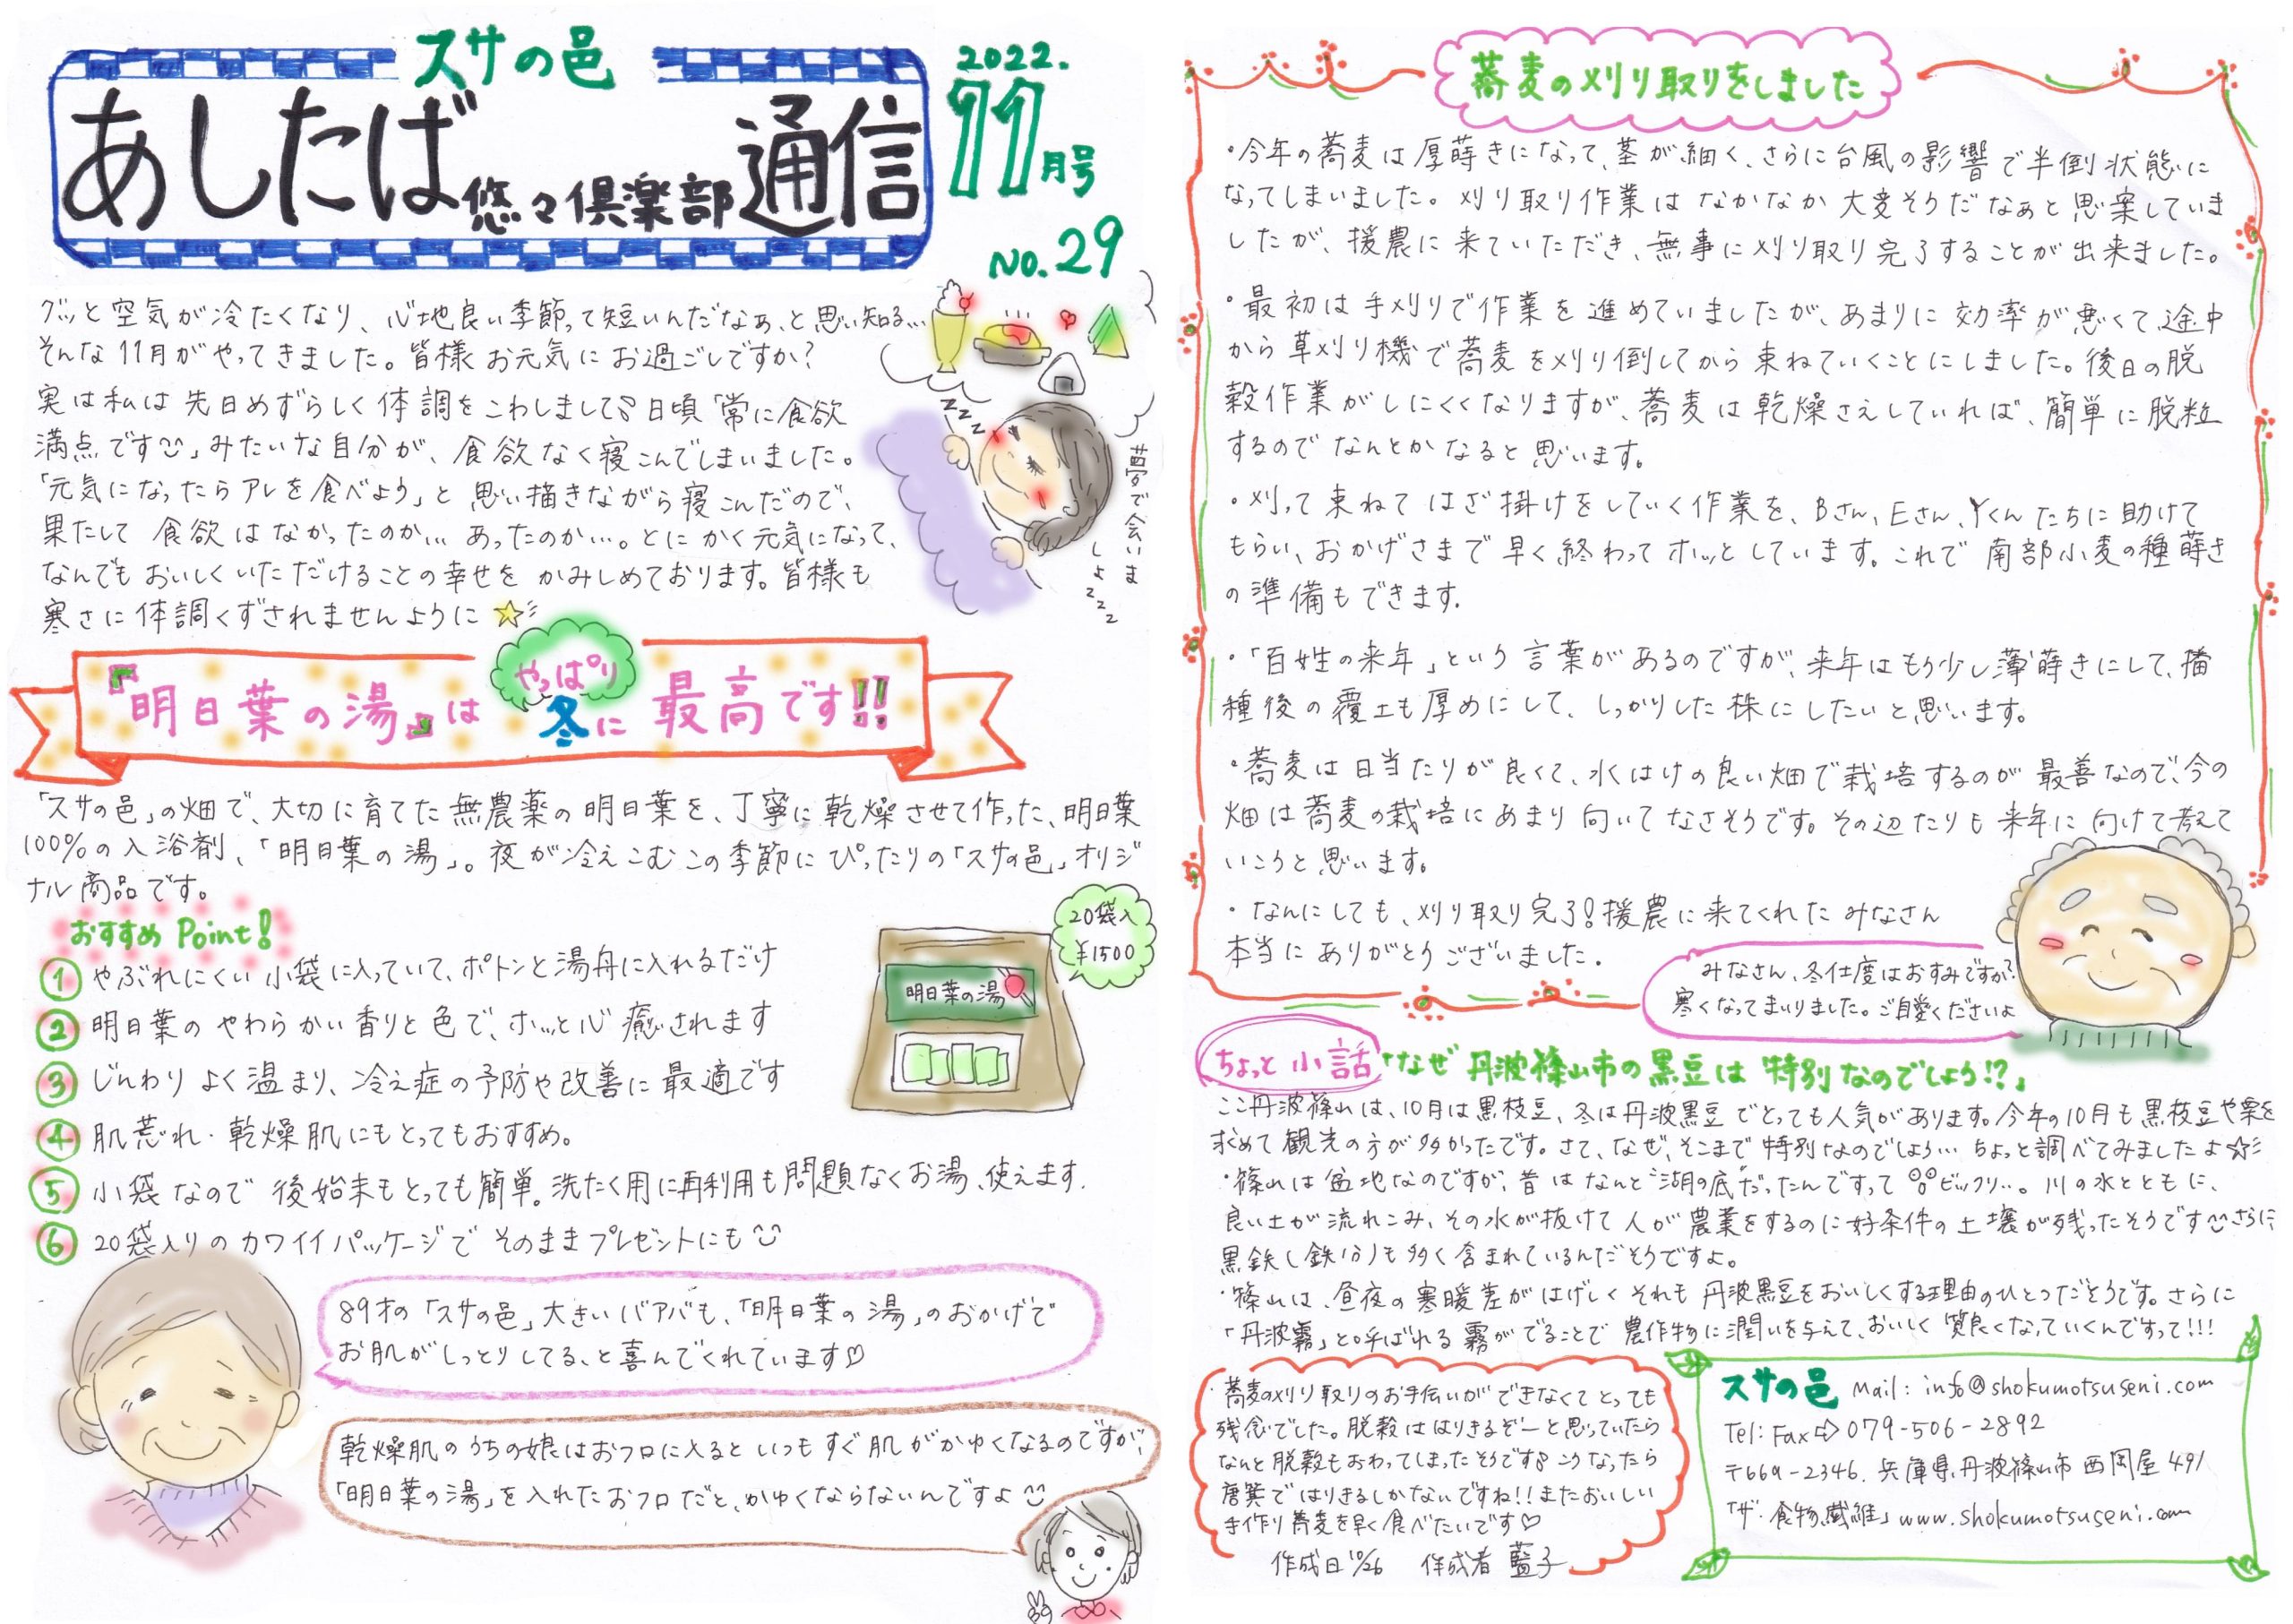 スサの邑
あしたば悠々倶楽部通信
2022.
11月号
No.29
グッと空気が冷たくなり、心地良い季節って短いんだなぁ、と思い知る…
そんな11月がやってきました。皆様お元気にお過ごしですか？
実は私は先日めずらしく体調をこわしまして 日頃「常に食欲
満点です」みたいな自分が、食欲なく寝こんでしまいました。
「元気になったらアレを食べよう」と思い描きながら寝こんだので、
果たして食欲はなかったのか… あったのか…。とにかく元気になって、
なんでもおいしくいただけることの幸せをかみしめております。皆様も
寒さに体調くずされませんように☆
zzz
夢で会いま
しょzzz
『明日葉の湯』はやっぱり冬に最高です!!
「スサの邑」の畑で、大切に育てた無農薬の明日葉を、丁寧に乾燥させて作った、明日葉
100%の入浴剤、「明日葉の湯」。夜が冷えこむこの季節にぴったりの「スサの邑」オリジ
ナル商品です。
おすすめPoint!
① やぶれにくい小袋に入っていて、ポトンと湯舟に入れるだけ
② 明日葉のやわらかい香りと色で、ホッと心癒されます
③ じんわりよく温まり、冷え症の予防や改善に最適です
④ 肌荒れ・乾燥肌にもとってもおすすめ。
⑤ 小袋なので後始末もとっても簡単。洗たく用に再利用も問題なくお湯、使えます.
⑥ 20袋入りのカワイイパッケージでそのままプレゼントにも
20袋入
¥1500
明日葉の湯
89才の「スサの邑」大きいバアバも、「明日葉の湯」のおかげで
お肌がしっとりしてる、と喜んでくれています♡
乾燥肌のうちの娘はおフロに入るといつもすぐ肌がかゆくなるのですが、
「明日葉の湯」を入れたおフロだと、かゆくならないんですよ
蕎麦の刈り取りをしました
・今年の蕎麦は厚蒔きになって、茎が細く、さらに台風の影響で半倒状態に
なってしまいました。刈り取り作業はなかなか大変そうだなぁと思案していま
したが、援農に来ていただき、無事に刈り取り完了することが出来ました。
・最初は手刈りで作業を進めていましたが、あまりに効率が悪くて、途中
から草刈り機で蕎麦を刈り倒してから束ねていくことにしました。後日の脱
穀作業がしにくくなりますが、蕎麦は乾燥さえしていれば、簡単に脱粒
するのでなんとかなると思います。
・刈って束ねてはざ掛けをしていく作業を、Bさん、Eさん、Yくんたちに助けて
もらい、おかげさまで早く終わってホッとしています。これで南部小麦の種蒔き
の準備もできます.
・「百姓の来年」という言葉があるのですが、来年はもう少し薄蒔きにして、播
種後の覆土も厚めにして、しっかりした株にしたいと思います。
・蕎麦は日当たりが良くて、水はけの良い畑で栽培するのが最善なので、今の
畑は蕎麦の栽培にあまり向いてなさそうです。その辺たりも来年に向けて考えて
いこうと思います。
・なんにしても、刈り取り完了！援農に来てくれたみなさん
本当にありがとうございました.
みなさん、冬仕度はおすみですか？
寒くなってまいりました。ご自愛くださいよ
ちょっと小話「なぜ丹波篠山市の黒豆は特別なのでしょう!?」
ここ丹波篠山は、10月は黒枝豆、冬は丹波黒豆でとっても人気があります。今年の10月も黒枝豆や栗を
求めて観光の方が多かったです。さて、なぜ、そこまで特別なのでしょう… ちょっと調べてみましたよ☆
・篠山は盆地なのですが、昔はなんと湖の底だったんですって ビックリ…。川の水とともに、
良い土が流れこみ、その水が抜けて人が農業をするのに好条件の土壌が残ったそうです さらに
黒鉄(鉄分)も多く含まれているんだそうですよ。
・篠山は、昼夜の寒暖差がはげしくそれも丹波黒豆をおいしくする理由のひとつだそうです。さらに
「丹波霧」と呼ばれる霧がでることで農作物に潤いを与えて、おいしく質良くなっていくんですって!!!
・蕎麦の刈り取りのお手伝いができなくてとっても
残念でした。脱穀ははりきるぞーと思っていたら
なんと脱穀もおわってしまったそうです こうなったら
唐箕ではりきるしかないですね!! またおいしい
手作り蕎麦を早く食べたいです♡
作成日10/26 作成者 藍子
スサの邑 Mail: info@shokumotsuseni.com
Tel: Fax⇨079-506-2892
〒669-2346. 兵庫県丹波篠山市西岡屋491
「ザ・食物繊維」www.shokumotsuseni.com